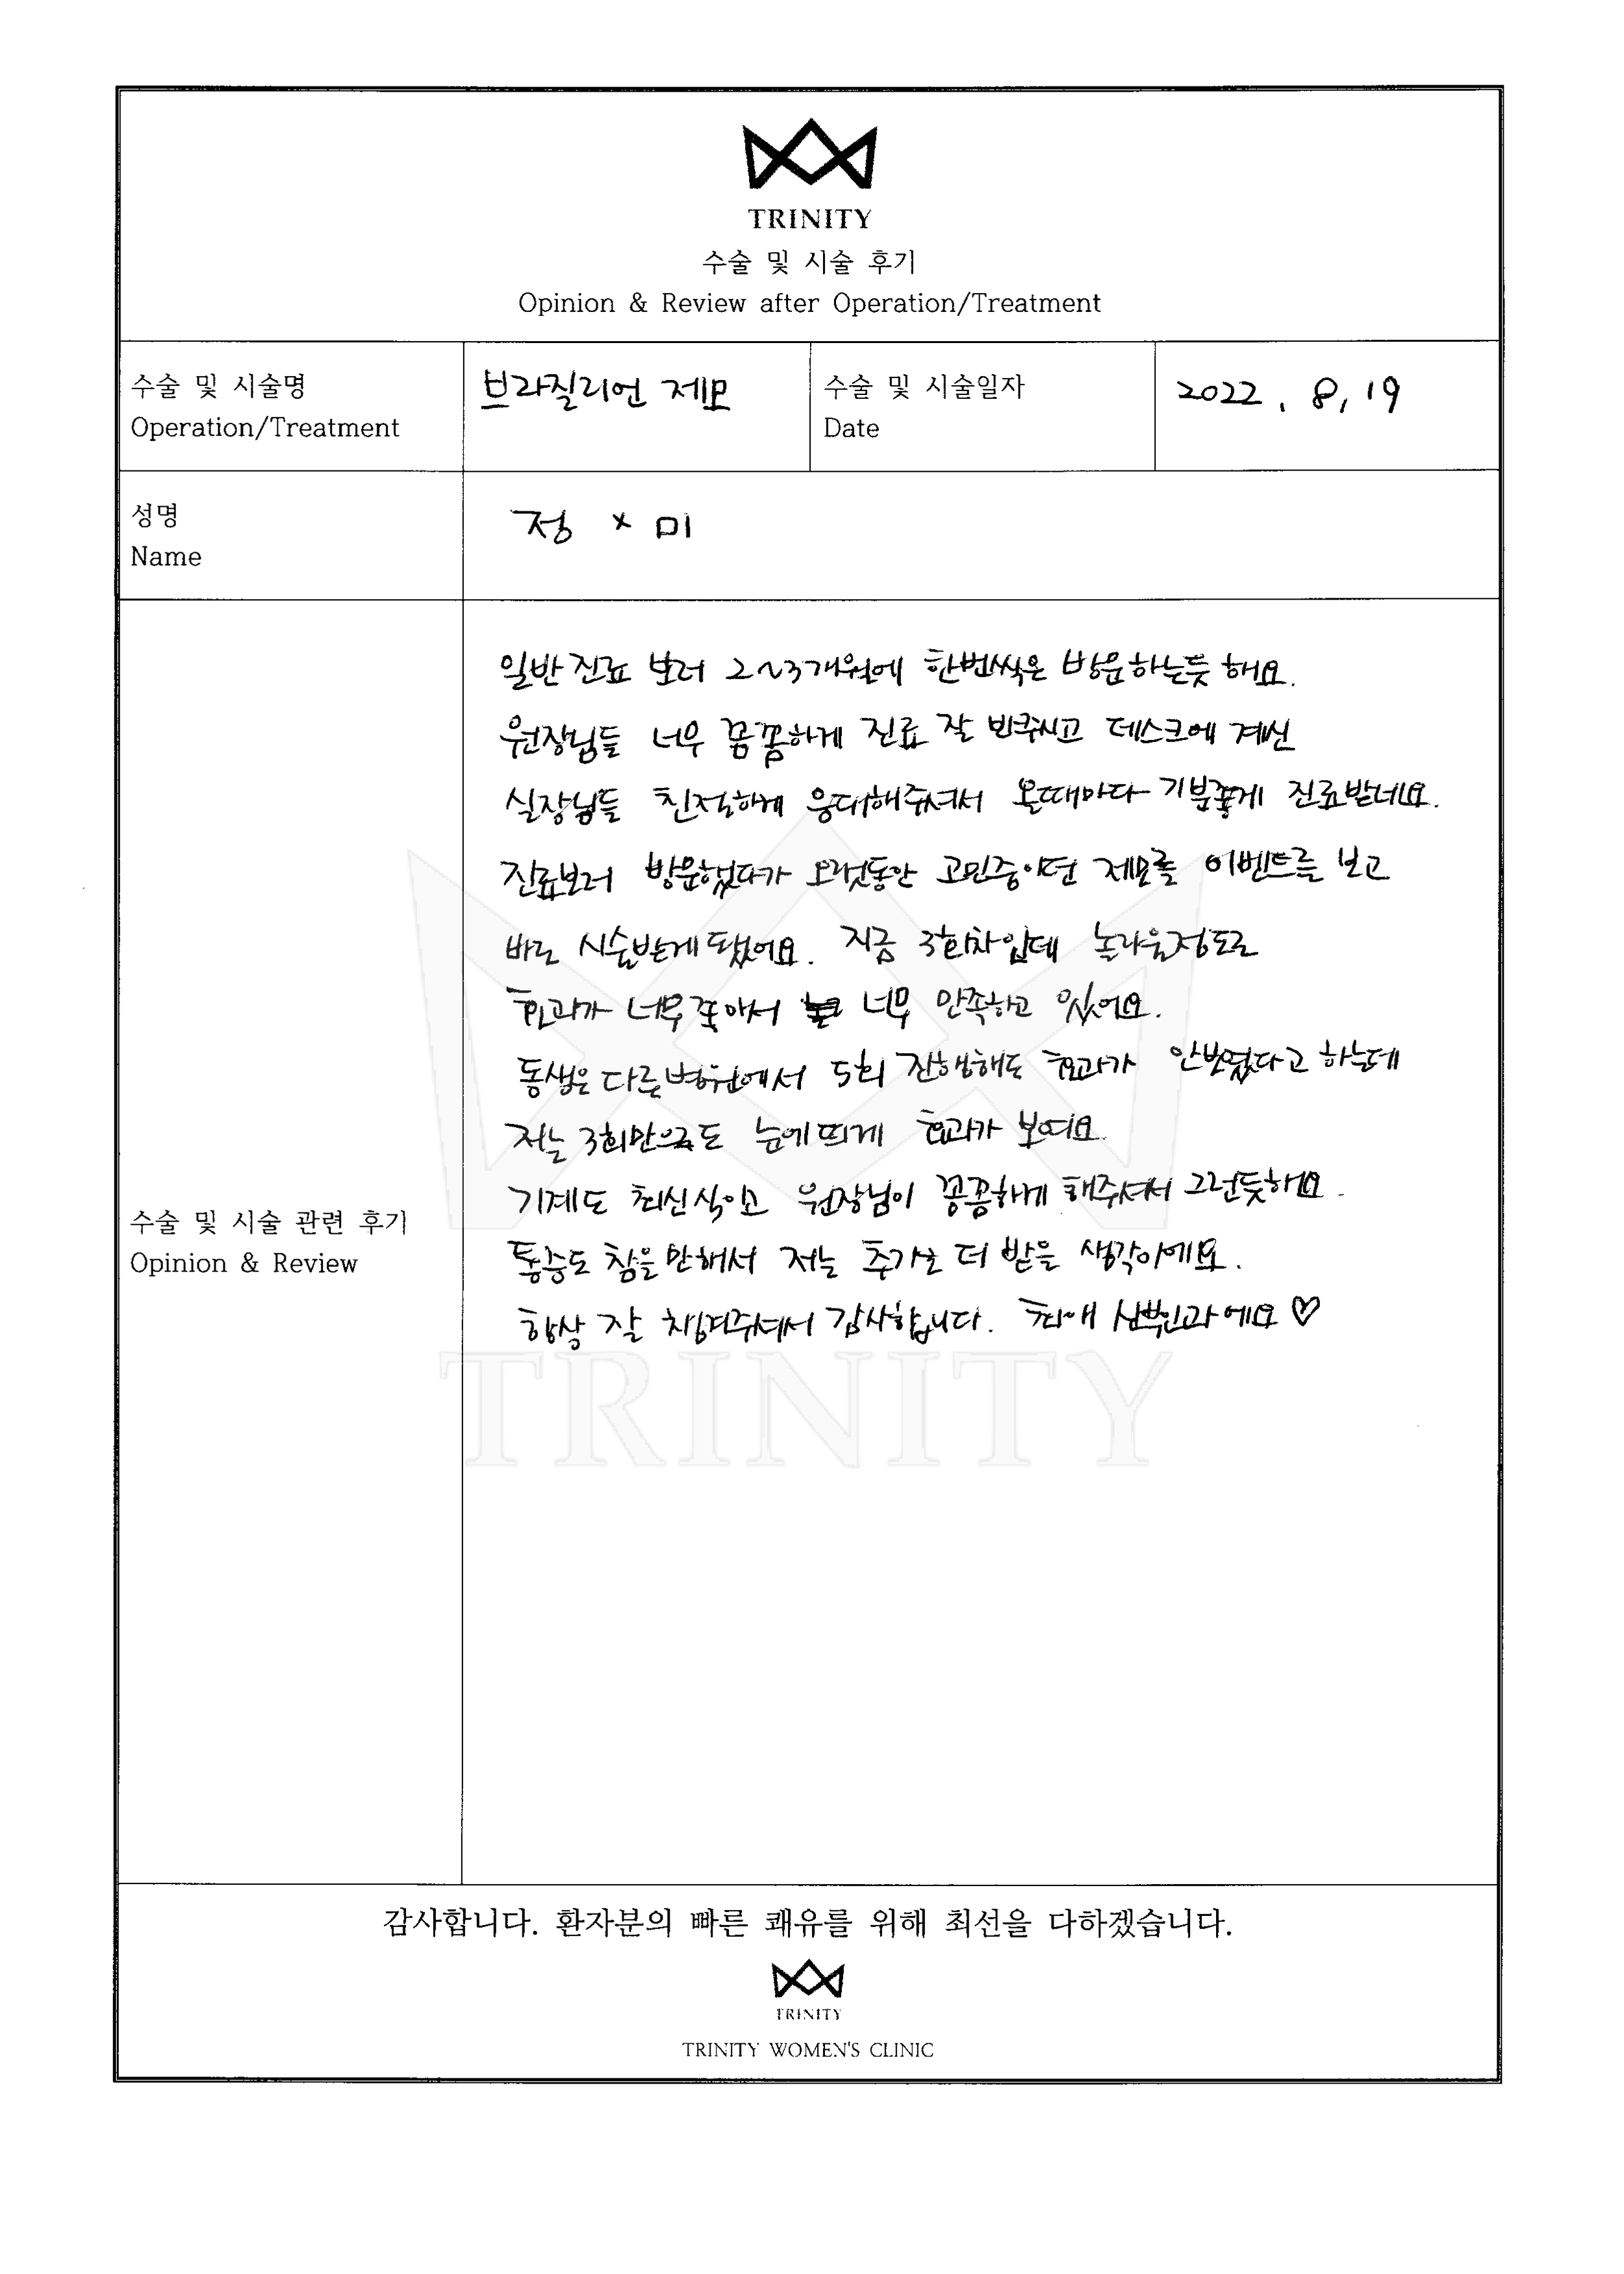 TRINITY
수술 및 시술 후기
Opinion & Review after Operation/Treatment
수술 및 시술명
Operation/Treatment
브라질리언 제모
수술 및 시술일자
Date
2022. 8, 19
성명
Name
정 x 미
수술 및 시술 관련 후기
Opinion & Review
일반진료 보러 2~3개월에 한번씩은 방문하는듯 해요.
원장님들 너무 꼼꼼하게 진료 잘 봐주시고 데스크에 계신
실장님들 친절하게 응대해주셔서 올때마다 기분좋게 진료받네요.
진료보러 방문했다가 오랫동안 고민중이던 제모를 이벤트를 보고
바로 시술받게 됐어요. 지금 3회차인데 놀라울정도로
효과가 너무좋아서 너무 만족하고 있어요.
동생은 다른병원에서 5회 진행해도 효과가 안보였다고 하는데
저는 3회만으로도 눈에띄게 효과가 보여요.
기계도 최신식이고 원장님이 꼼꼼하게 해주셔서 그런듯해요.
통증도 참을만해서 저는 추가로 더 받을 생각이에요.
항상 잘 챙겨주셔서 감사합니다. 최애 산부인과에요♡
TRINITY
감사합니다. 환자분의 빠른 쾌유를 위해 최선을 다하겠습니다.
TRINITY
TRINITY WOMEN'S CLINIC